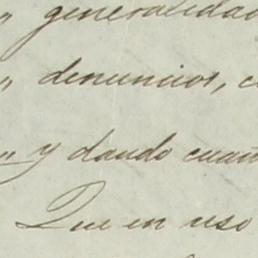 „ generalidad
„ denuncios, c
„ y dando cuan
Que en uso